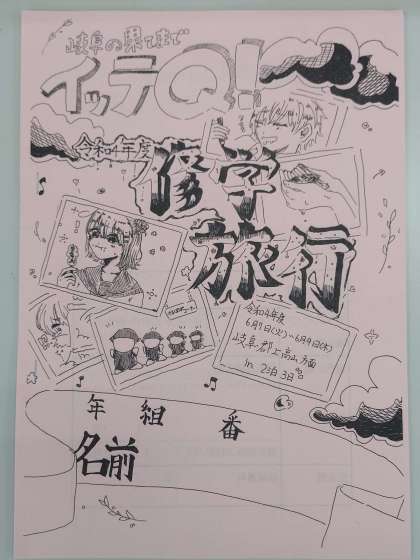 岐阜の果てまで
イッテQ!
令和4年度
修学
旅行
令和4年度
6月7日(火)〜6月9日(木)
岐阜郡上高山方面
in 2泊3日
年 組 番
名前